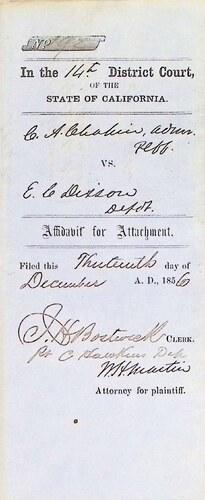 No
In the 14th District Court,
OF THE
STATE OF CALIFORNIA.
C. A. Chabin, admr.
Plff.
VS.
E. C. Dixson
Defdt.
Affidavit for Attachment.
Filed this Thirteenth day of
December A. D., 1856
J. H. Bostwick CLERK.
Pr C Hawkins Dep
W. H. Martin
Attorney for plaintiff.